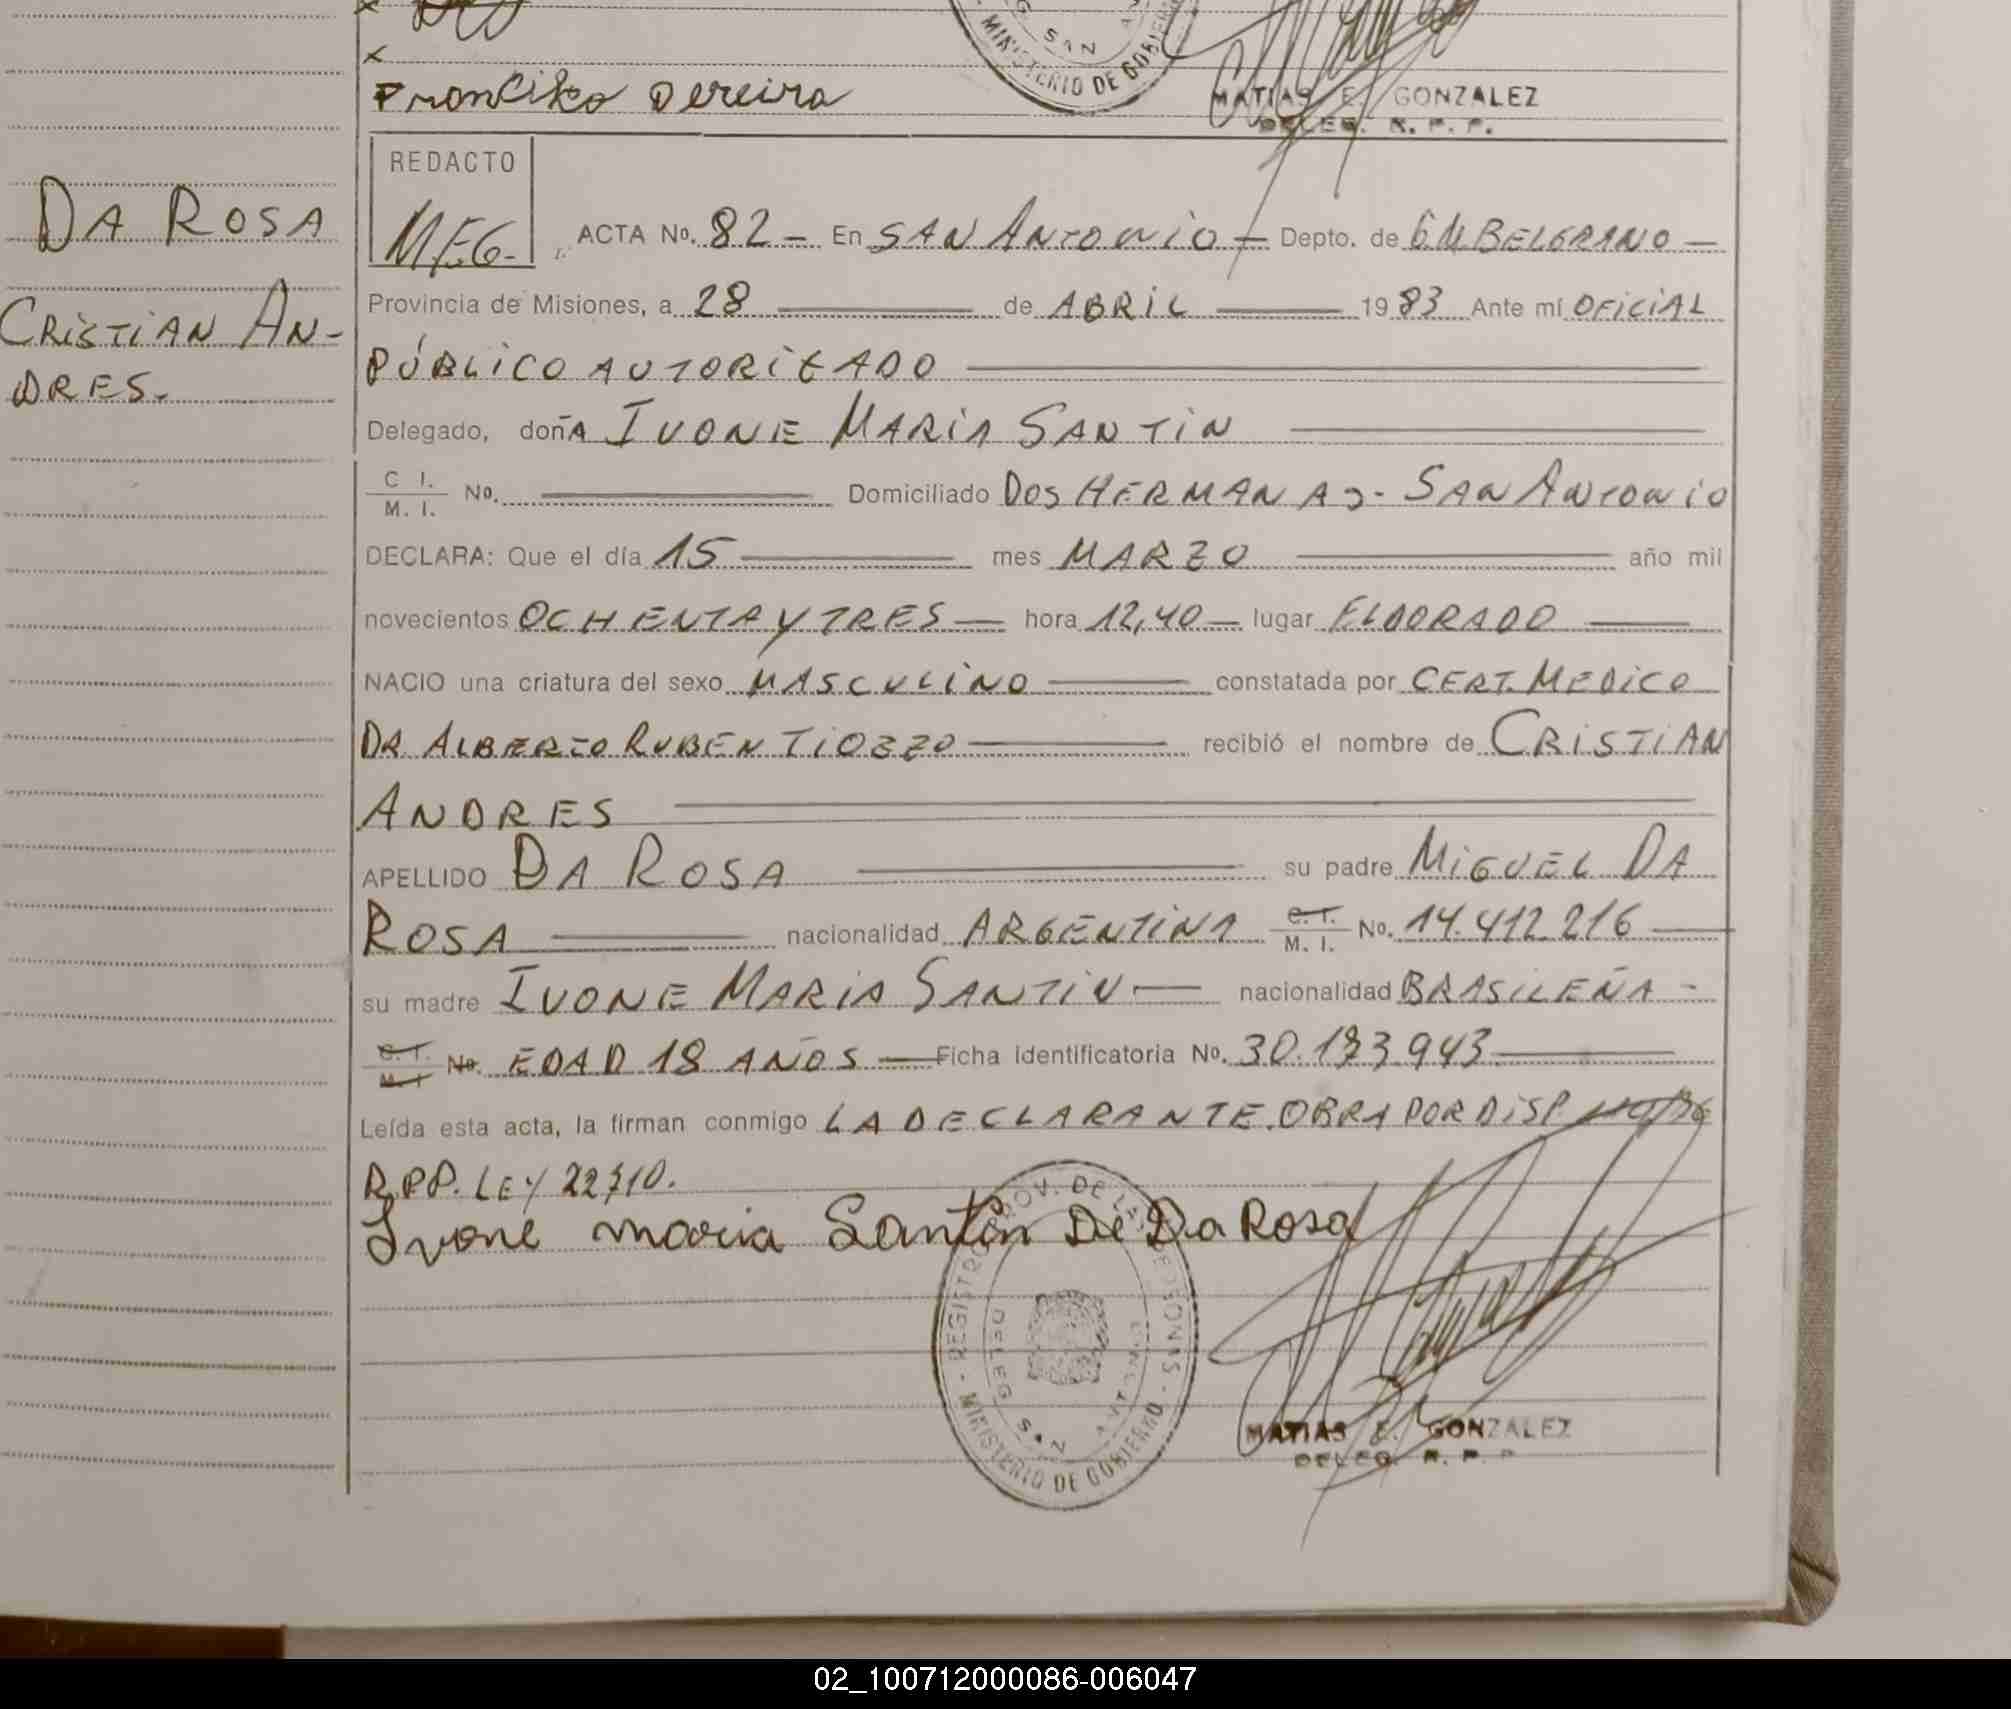 SAN
MINISTERIO DE GOBIERNO
Francisko Pereira
MATIAS E. GONZALEZ
DELEG. R. P. P.
DA ROSA
CRISTIAN AN-
DRES.
REDACTO
M.E.G.
ACTA No. 82 - En SAN ANTONIO - Depto. de GM BELGRANO -
Provincia de Misiones, a 28 de ABRIL 1983 Ante mí OFICIAL
PÚBLICO AUTORIZADO
Delegado, doñA IVONE MARIA SANTIN
C I.
M. I. No. Domiciliado DOS HERMANAS - SAN ANTONIO
DECLARA: Que el día 15 mes MARZO año mil
novecientos OCHENTA Y TRES - hora 12,40 - lugar ELDORADO
NACIO una criatura del sexo MASCULINO constatada por CERT. MEDICO
DR ALBERTO RUBEN TIOZZO recibió el nombre de CRISTIAN
ANDRES
APELLIDO DA ROSA su padre MIGUEL DA
ROSA nacionalidad ARGENTINA C. I. M. I. No. 14.412.216
su madre IVONE MARIA SANTIN - nacionalidad BRASILEÑA -
C. I. M. I No. EDAD 18 AÑOS - Ficha identificatoria No. 30.193.943
Leída esta acta, la firman conmigo LA DECLARANTE. OBRA POR DISP
R.P.P. LEY 22710.
Ivone maria Santin De Da Rosa
REGISTRO PROV. DE LAS PERSONAS
DELEG. SAN ANTONIO
MINISTERIO DE GOBIERNO
MATIAS E. GONZALEZ
DELEG. R. P. P
02_100712000086-006047